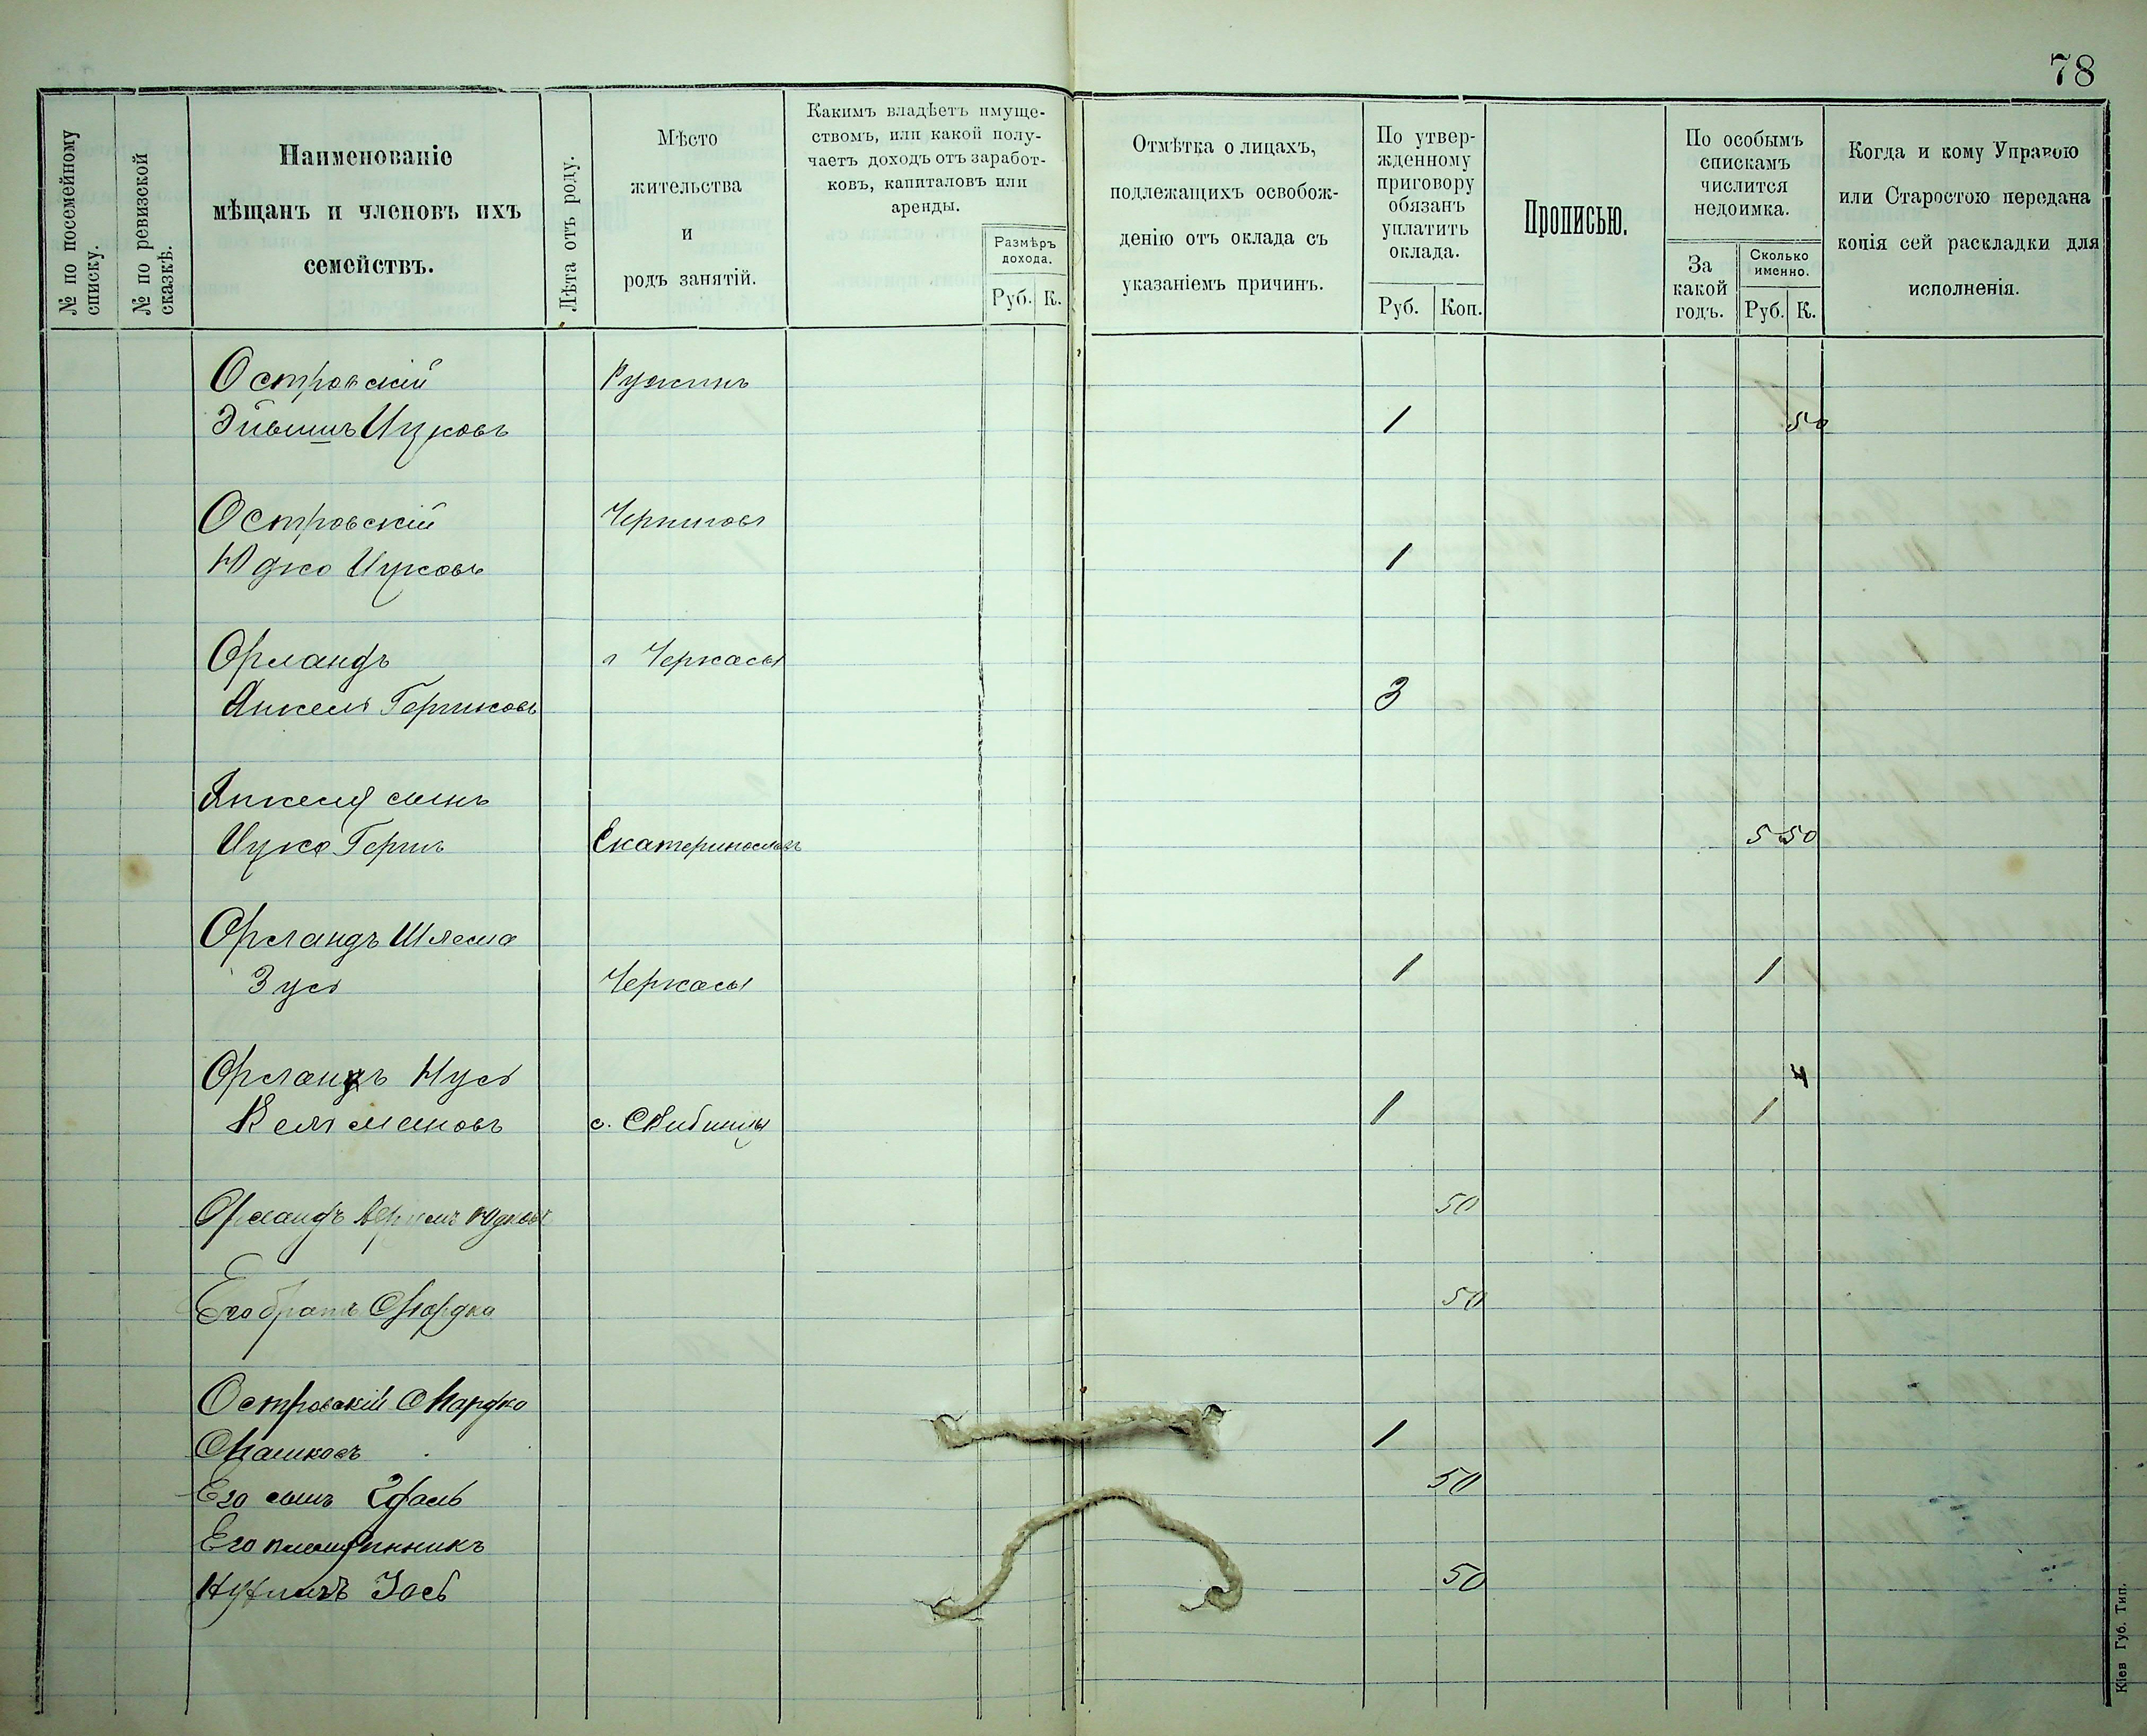 78
№ по посемейному
списку.
№ по ревизской
сказкѣ.
Наименованіе
мѣщанъ и членовъ ихъ
семействъ.
Лѣта отъ роду.
Мѣсто
жительства
и
родъ занятій.
Какимъ владѣетъ имуще-
ствомъ, или какой полу-
чаетъ доходъ отъ заработ-
ковъ, капиталовъ или
аренды.
Размѣръ
дохода.
Руб. К.
Отмѣтка о лицахъ,
подлежащихъ освобож-
денію отъ оклада съ
указаніемъ причинъ.
По утвер-
жденному
приговору
обязанъ
уплатить
оклада.
Руб. Коп.
Прописью.
По особымъ
спискамъ
числится
недоимка.
За
какой
годъ.
Сколько
именно.
Руб. К.
Когда и кому Управою
или Старостою передана
копія сей раскладки для
исполненія.
Островскій Ружинъ
Ицковъ 1 50
Островскій Черниговъ
Юдко Ицковъ 1
Орландъ г Черкасы
Янкель Гершковъ 3
Янкеля сынъ
Ицко Гершъ Екатеринославъ 5 50
Орландъ Шлема
Зусь Черкасы 1 1
Орландъ Нусь 4
Кельмановъ с. 1 1
Орландъ Юдковъ 50
Его братъ Мордко 50
Островскій Мардко
Мошковъ 1
Его сынъ 50
Его племянникъ
Іось 50
Кіев Губ. Тип.